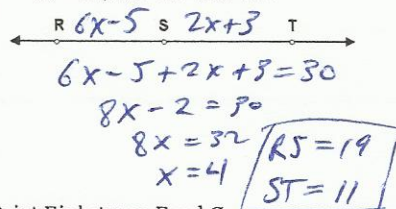 R 6x-5 S 2x+3 T
6x-5+2x+3=30
8x-2=30
8x=32
x=4
RS=19
ST=11